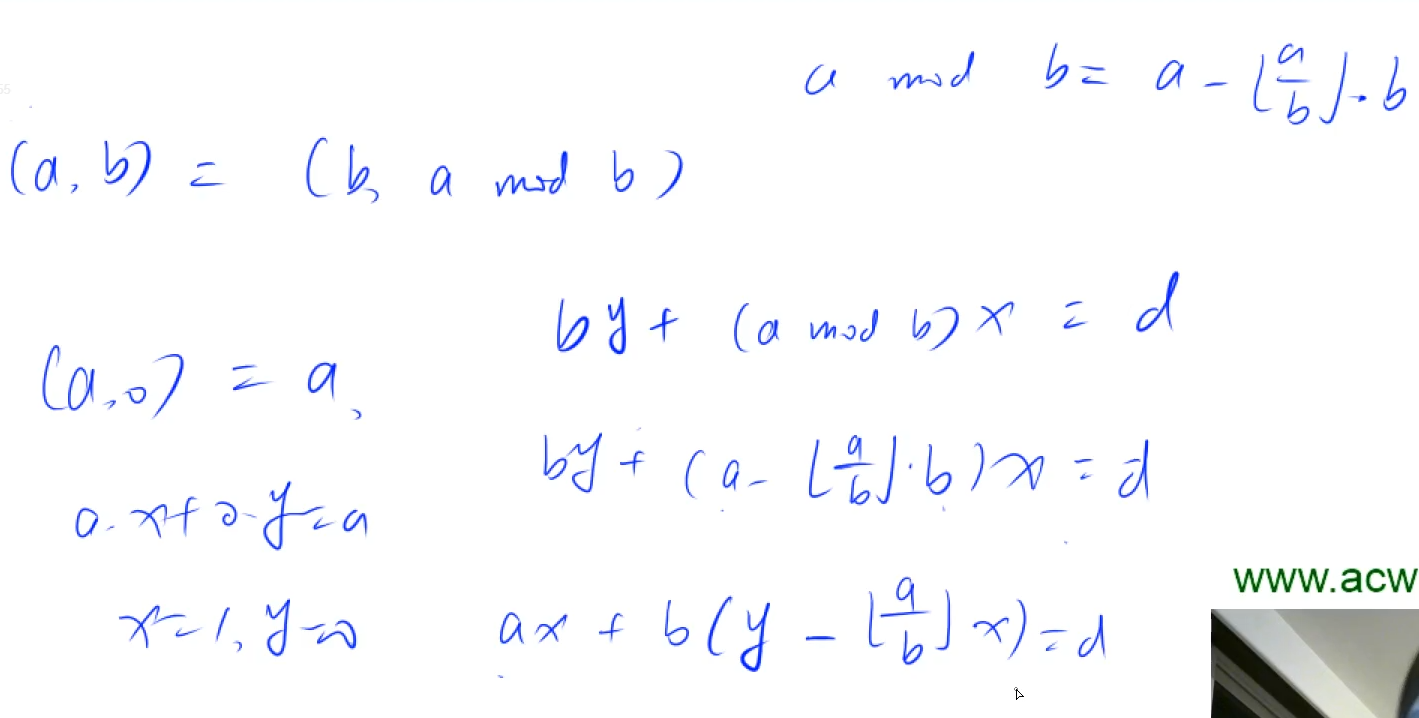 a mod b = a - ⌊a/b⌋ · b
(a, b) = (b, a mod b)
by + (a mod b) x = d
(a, 0) = a,
by + (a - ⌊a/b⌋ · b) x = d
a · x + 0 · y = a
www.acw
x = 1, y = 0
ax + b(y - ⌊a/b⌋ x) = d